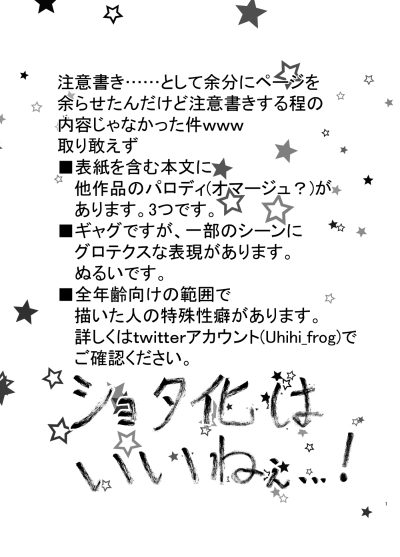 注意書き……として余分にページを
余らせたんだけど注意書きする程の
内容じゃなかった件www
取り敢えず
■表紙を含む本文に
他作品のパロディ(オマージュ？)が
あります。3つです。
■ギャグですが、一部のシーンに
グロテクスな表現があります。
ぬるいです。
■全年齢向けの範囲で
描いた人の特殊性癖があります。
詳しくはtwitterアカウント(Uhihi_frog)で
ご確認ください。
ショタ化は
いいねぇ…!
1